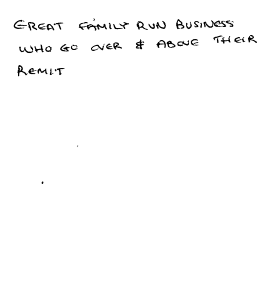 GREAT FAMILY RUN BUSINESS
WHO GO OVER & ABOVE THEIR
REMIT